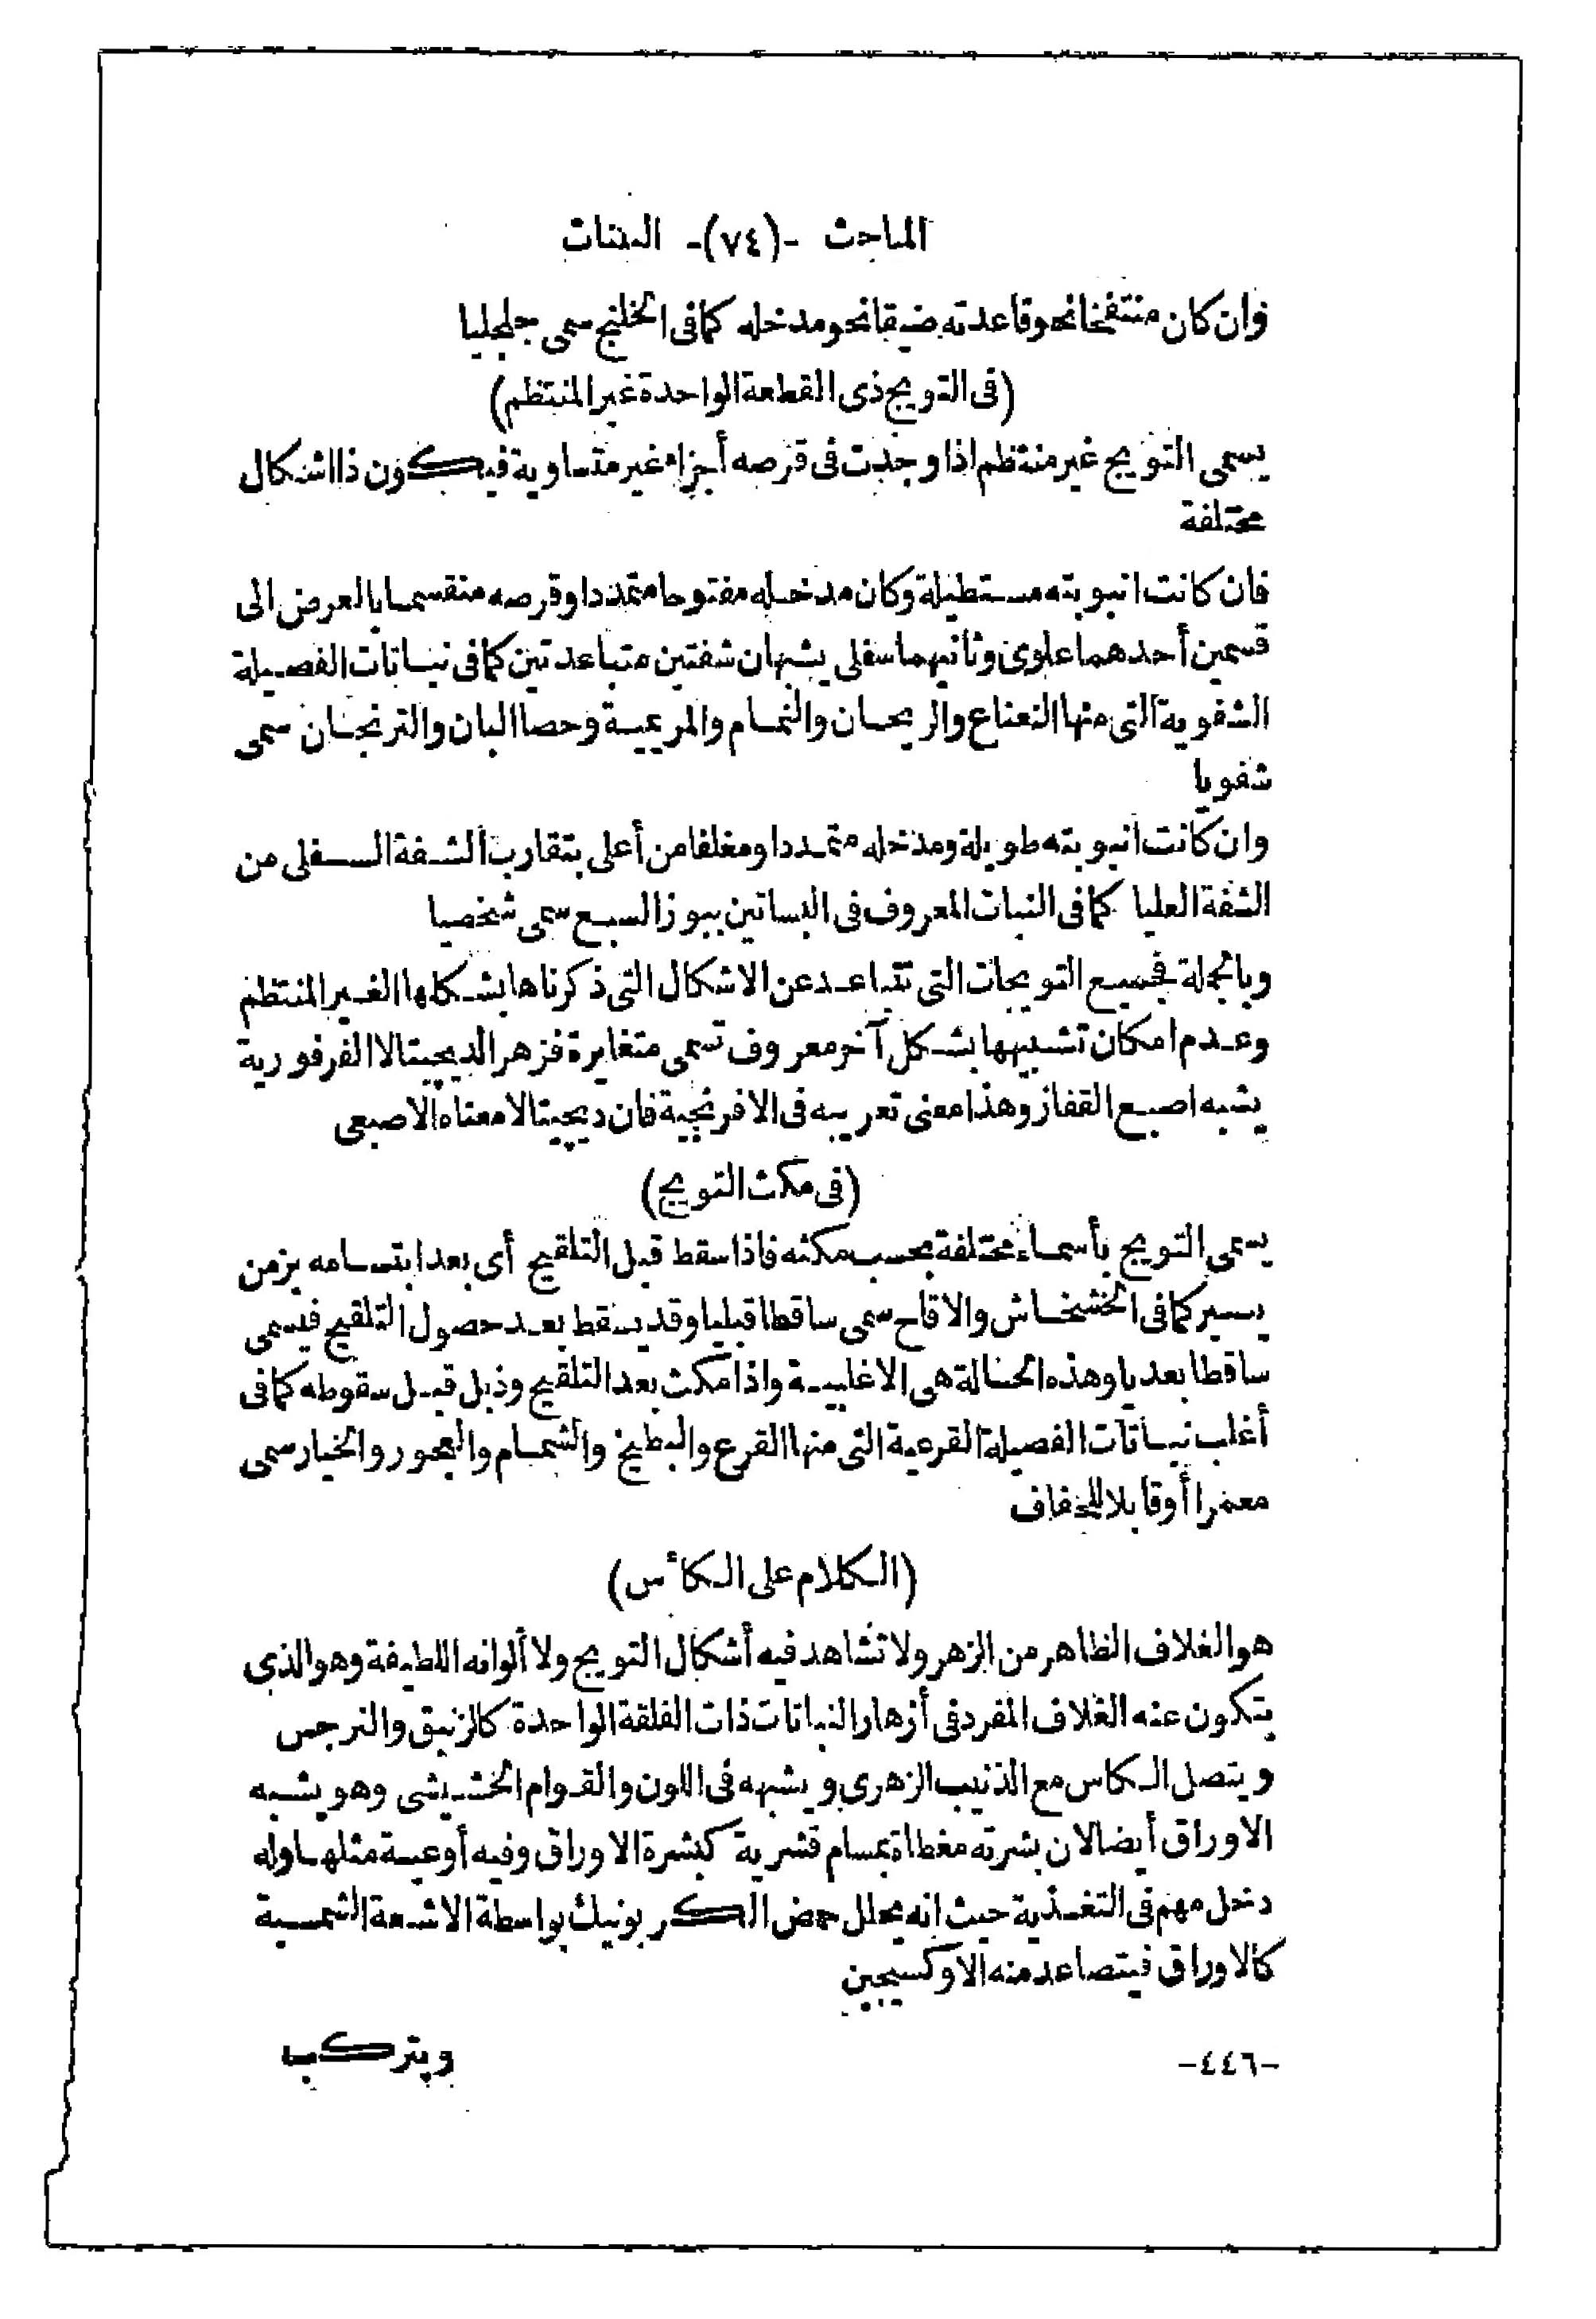 المباحث -(٧٤)- البينات
وان كان منتفخا نحو قاعدته ضيقا نحو مدخله كما فى الخلنج سمى جلجليا
(فى التويج ذى القطعة الواحدة غير المنتظم)
يسمى التويج غير منتظم اذا وجدت فى قرصه أجزاء غير متساوية فيكون ذا اشكال
مختلفة
فان كانت انبوبته مستطيلة وكان مدخله مفتوحا متمددا وقرصه منقسما بالعرض الى
قسمين أحدهما علوى وثانيهما سفلى يشبهان شفتين متباعدتين كما فى نباتات الفصيلة
الشفوية التى منها النعناع والريحان والنمام والمريمية وحصا البان والترنجان سمى
شفويا
وان كانت انبوبته طويلة ومدخله متمددا ومغلقا من أعلى بتقارب الشفة السفلى من
الشفة العليا كما فى النبات المعروف فى البساتين ببوز السبع سمى شخصيا
وبالجملة فجميع التويجات التى تتباعد عن الاشكال التى ذكرناها بشكلها الغير المنتظم
وعدم امكان تشبيهها بشكل آخر معروف تسمى متغايرة فزهر الديجيتالا الفرفورية
يشبه اصبع القفاز وهذا معنى تعريبه فى الافرنجية فان ديجيتالا معناه الاصبعى
(فى مكث التويج)
يسمى التويج بأسماء مختلفة بحسب مكثه فاذا سقط قبل التلقيح أى بعد ابتسامه بزمن
يسير كما فى الخشخاش والاقاح سمى ساقطا قبليا وقد يسقط بعد حصول التلقيح فيسمى
ساقطا بعديا وهذه الحالة هى الاغلبية واذا مكث بعد التلقيح وذبل قبل سقوطه كما فى
أغلب نباتات الفصيلة القرعية التى منها القرع والبطيخ والشمام والعجور والخيار سمى
معمرا أو قابلا للجفاف
(الكلام على الكأس)
هو الغلاف الظاهر من الزهر ولا تشاهد فيه أشكال التويج ولا ألوانه اللطيفة وهو الذى
يتكون عنه الغلاف المفرد فى أزهار النباتات ذات الفلقة الواحدة كالزنبق والنرجس
ويتصل الكاس مع الذنيب الزهرى ويشبهه فى اللون والقوام الحشيشى وهو يشبه
الاوراق أيضا لان بشرته مغطاة بمسام قشرية كبشرة الاوراق وفيه أوعية مثلها وله
دخل مهم فى التغذية حيث انه يحلل حمض الكربونيك بواسطة الاشعة الشمسية
كالاوراق فيتصاعد منه الاوكسيجين
ويتركب
-٤٤٦-